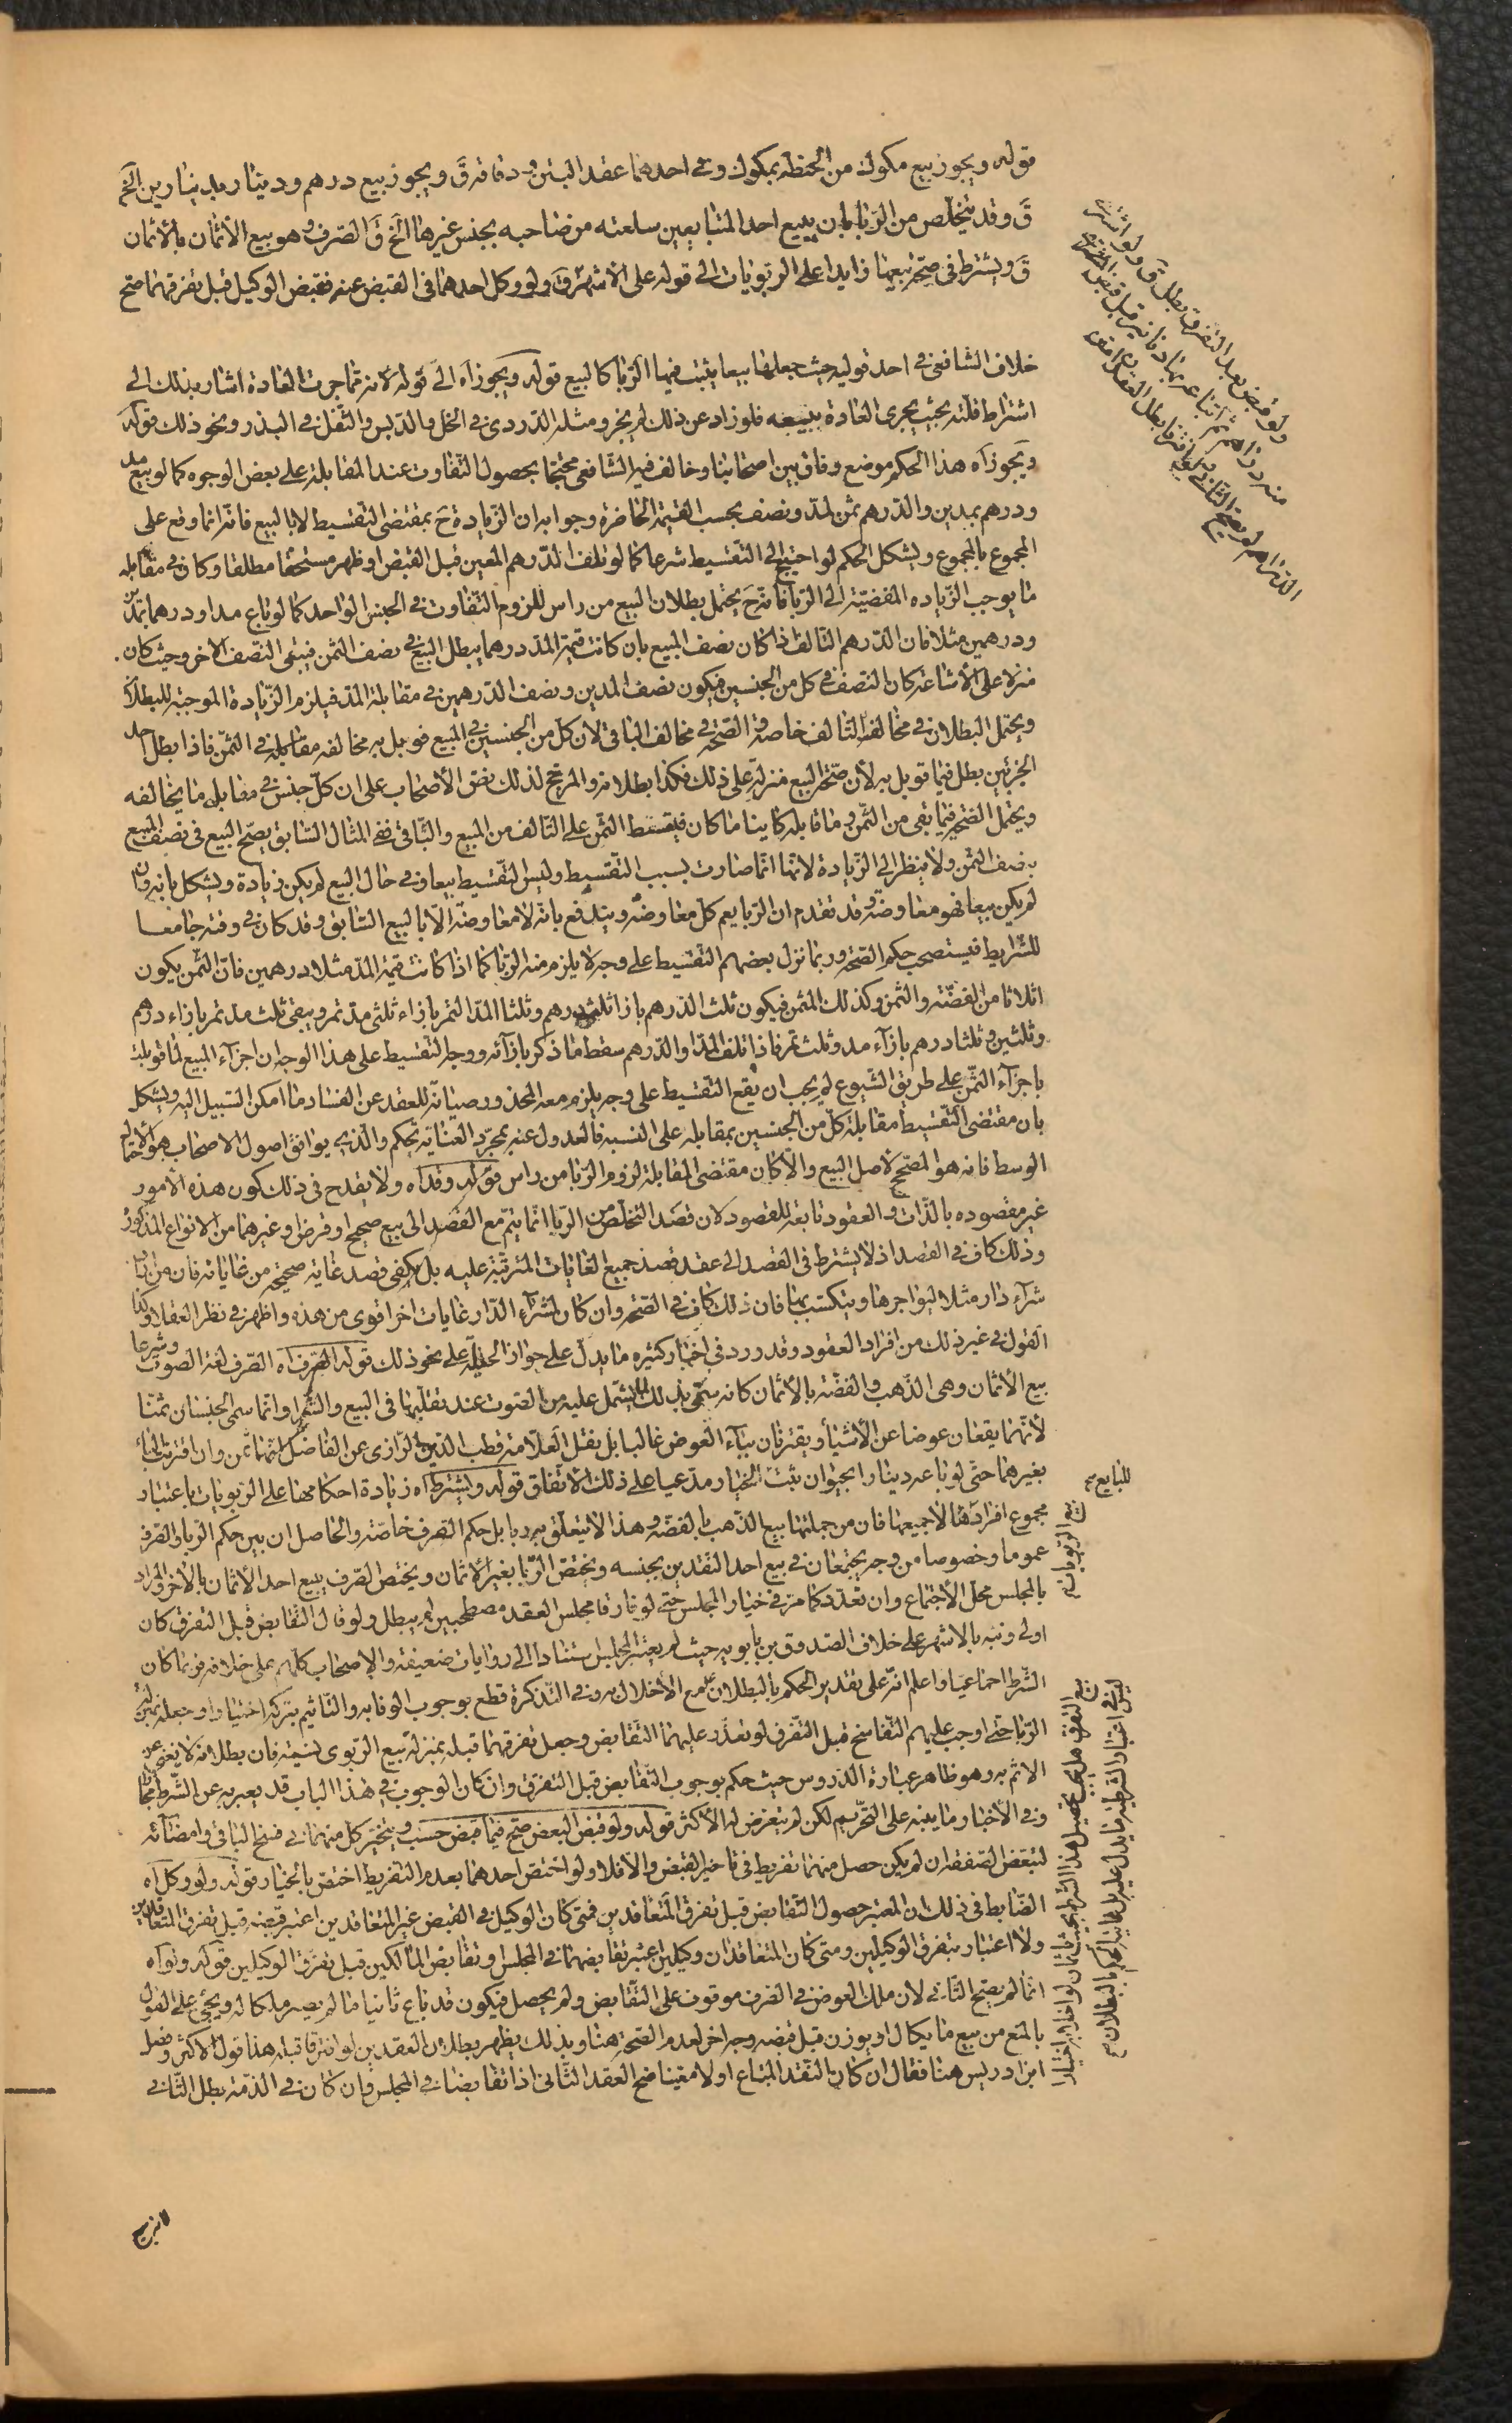 قوله ويجوز بيع مكوك من الحنطة بمكوك وفى احدهما عقد التبن و دقاقه قَ ويجوز بيع درهم ودينار بدينارين الخ
قَ وقد يتخلص من الربا بان يبيع احد المتبايعين سلعته من صاحبه بجنس غيرها الخ قَ الصرف وهو بيع الاثمان بالاثمان
قَ ويشترط فى صحة بيعها زايدا على الربويات الى قوله على الاشهر قَ ولو وكل احدهما فى القبض عنه فقبض الوكيل قبل تفرقهما صح
ولو قبض بعد التفرق بطل قَ ولو اشترى
منه دراهم ثم ابتاع بها دنانير قبل قبض
الدراهم لم يصح الثانى
خلاف الشافعى فى احد قوليه حيث جعلها بيعا يثبت فيها الربا كالبيع قوله ويجوز آه الى قوله لانه مما جرت العادة اشار بذلك الى
اشتراط قلته بحيث يجرى العادة ببيعه فلو زاد عن ذلك لم يجز ومثله الدردى فى الخل والدبس والثفل فى البذر ونحو ذلك قوله
ويجوز آه هذا الحكم موضع وفاق بين اصحابنا وخالف فيه الشافعى محتجا بحصول التفاوت عند المقابلة على بعض الوجوه كما لو بيع مد
ودرهم بمدين والدرهم ثمن لمد ونصف بحسب القيمة الحاضرة وجوابه ان الزيادة حَ بمقتضى التقسيط لا بالبيع فانه انما وقع على
المجموع بالمجموع ويشكل الحكم لو احتيج الى التقسيط شرعا كما لو تلف الدرهم المعين قبل القبض او ظهر مستحقا مطلقا وكان فى مقابله
ما يوجب الزياده المفضية الى الربا فانه حَ يحتمل بطلان البيع من راس للزوم التفاوت فى الجنس الواحد كما لو باع مدا ودرهما بمدين
ودرهمين مثلا فان الدرهم التالف اذا كان نصف المبيع بان كانت قيمة المد درهما يبطل البيع فى نصف الثمن فيبقى النصف الاخر وحيث كان
منزلا على الاشاعة كان النصف فى كل من الجنسين فيكون نصف المدين ونصف الدرهمين فى مقابلة المد فيلزم الزيادة الموجبة للبطلان
ويحتمل البطلان فى مخالف التالف خاصة والصحة فى مخالف الباقى لان كل من الجنسين فى المبيع قوبل به مخالفه مقابلة فى الثمن فاذا بطل احد
الجزئين بطل فيما قوبل به لان صحة البيع منزلة على ذلك فكذا بطلانه والمرجح لذلك نص الاصحاب على ان كل جنس فى مقابله ما يخالفه
ويحتمل الصحة فيما بقى من الثمن وما قابله كاينا ما كان فيقسط الثمن على التالف من المبيع والباقى ففى المثال السابق يصح البيع فى نصف المبيع
بنصف الثمن ولا ينظر الى الزيادة لانها انما صارت بسبب التقسيط وليس التقسيط بيعا وفى حال البيع لم يكن زيادة ويشكل بانه وان
لم يكن بيعا فهو معاوضة وقد تقدم ان الربا يعم كل معاوضة ويندفع بانه لا معاوضة الا بالبيع السابق وقد كان فى وقته جامعا
للشرايط فيستصحب حكم الصحة وربما نزل بعضهم التقسيط على وجه لا يلزم منه الربا كما اذا كانت قيمة المد مثلا درهمين فان الثمن يكون
اثلاثا من الفضة والثمن وكذلك المثمن فيكون ثلث الدرهم بازا ثلثى درهم وثلثا المد التمر بازاء ثلثى مد تمر ويبقى ثلث مد تمر بازاء درهم
وثلثين وثلثا درهم بازآء مد وثلث تمر فاذا تلف المد او الدرهم سقط ما ذكر بازآئه ووجه التقسيط على هذا الوجه ان اجزآء المبيع لما قوبلت
باجزآء الثمن على طريق الشيوع لم يجب ان يقع التقسيط على وجه يلزم معه المحذور صيانة للعقد عن الفساد ما امكن السبيل اليه ويشكل
بان مقتضى التقسيط مقابلة كل من الجنسين بمقابله على النسبه فالعدول عنه بمجرد العناية تحكم والذى يوافق اصول الاصحاب هو الاحتمال
الوسط فانه هو المصحح لاصل البيع والا كان مقتضى المقابلة لزوم الربا من راس قوله وقد آه ولا يقدح فى ذلك كون هذه الامور
غير مقصوده بالذات والعقود تابعة للقصود لان قصد التخلص من الربا انما يتم مع القصد الى بيع صحيح او قرض او غيرهما من الانواع المذكورة
وذلك كاف فى القصد اذ لا يشترط فى القصد الى عقد قصد جميع الغايات المترتبة عليه بل يكفى قصد غاية صحيحة من غاياته فان من اراد
شرآء دار مثلا ليواجرها ويتكسب بها فان ذلك كاف فى الصحة وان كان لشرآء الدار غايات اخر اقوى من هذه واظهر فى نظر العقلا وكذا
القول فى غير ذلك من افراد العقود وقد ورد فى اخبار كثيره ما يدل على جواز الحيلة على نحو ذلك قوله الصرف آه الصرف لغة الصوت وشرعا
بيع الاثمان وهى الذهب والفضة بالاثمان كانه سمى بذلك لما يشتمل عليه من الصوت عند تقليبها فى البيع والشرا وانما سمى الجنسان ثمنا
لانهما يقعان عوضا عن الاشيأ ويقترنان ببآء العوض غالبا بل نقل العلامة قطب الدين الرازى عن الفاضل انهما ثمن وان اقترنت البأ
بغيرهما حتى لو باعه دينارا بحيوان ثبت الخيار مدعيا على ذلك الاتفاق قوله ويشترط آه زيادة احكامها على الربويات باعتبار
للبايع
مجموع افرادها لا جميعها فان من جملتها بيع الذهب بالفضة وهذا لا يتعلق به ربا بل حكم الصرف خاصة والحاصل ان بين حكم الربا والصرف
عموما وخصوصا من وجه يجتمعان فى بيع احد النقدين بجنسه ويختص الربا بغير الاثمان ويختص الصرف ببيع احد الاثمان بالاخر والمراد
بالمجلس محل الاجتماع وان تعدد كما مر فى خيار المجلس حتى لو فارقا مجلس العقد مصطحبين لم يبطل ولو قال التقابض قبل التفرق كان
اولى ونبه بالاشهر على خلاف الصدوق بن بابويه حيث لم يعتبر المجلس استنادا الى روايات ضعيفة والاصحاب كلهم على خلافه فربما كان
الشرط اجماعيا واعلم انه على تقدير الحكم بالبطلان مع الاخلال به وفى التذكرة قطع بوجوب الوفا به والتاثيم بتركه اختيارا وجعله بمنزلة
الربا حتى اوجب عليهم التفاسخ قبل التفرق لو تعذر عليهما التقابض وجعل تفرقهما قبله بمنزلة بيع الربوى نسيئة فان بطلانه لا يغنى عن
الاثم به وهو ظاهر عبارة الدروس حيث حكم بوجوب التقابض قبل التفرق وان كان الوجوب فى هذا الباب قد يعبر به عن الشرط مجازا
وفى الاخبار ما ينبه على التحريم لكن لم يتعرض له الاكثر قوله ولو قبض البعض صح فيما قبض حسب ويتخير كل منهما فى فسخ الباقى وامضائه
لتبعض الصفقة ان لم يكن حصل منهما تفريط فى تاخير القبض والا فلا ولو اختص احدهما بعدم التفريط اختص بالخيار قوله ولو وكل آه
الضابط فى ذلك ان المعتبر حصول التقابض قبل تفرق المتعاقدين فمتى كان الوكيل فى القبض غير المتعاقدين اعتبر قبضه قبل تفرق المتعاقدين
ولا اعتبار بتفرق الوكيلين ومتى كان المتعاقدان وكيلين اعتبر تقابضهما فى المجلس او تقابض المالكين قبل تفرق الوكيلين قوله ولو آه
انما لم يصح الثانى لان ملك العوض فى الصرف موقوف على التقابض ولم يحصل فيكون قد باع ثانيا ما لم يصر ملكا له ويجئ على القول
بالمنع من بيع ما يكال او يوزن قبل قبضه وجه اخر لعدم الصحة هنا وبذلك يظهر بطلان العقدين لو افترقا قبله هذا قول الاكثر وفصل
ابن ادريس هنا فقال ان كان النقد المبتاع اولا معينا صح العقد الثانى اذا تقابضا فى المجلس وان كان فى الذمة بطل الثانى